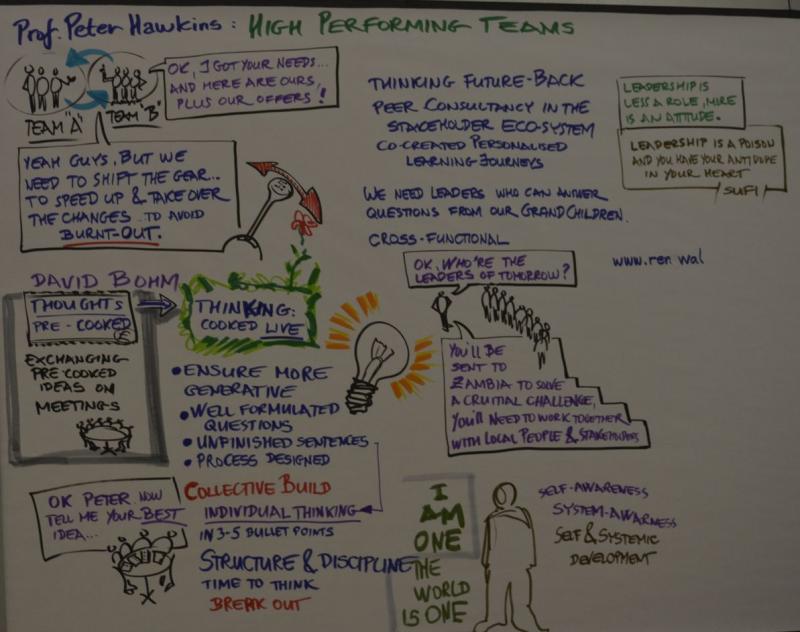 Prof. Peter Hawkins: HIGH PERFORMING TEAMS
TEAM "A"
TEAM "B"
OK, I GOT YOUR NEEDS...
AND HERE ARE OURS,
PLUS OUR OFFERS!
YEAH GUYS, BUT WE
NEED TO SHIFT THE GEAR...
TO SPEED UP & TAKE OVER
THE CHANGES TO AVOID
BURNT-OUT.
DAVID BOHM
THOUGHTS
PRE-COOKED
EXCHANGING
PRE COOKED
IDEAS ON
MEETINGS
THINKING:
COOKED LIVE
• ENSURE MORE
GENERATIVE
• WELL FORMULATED
QUESTIONS
• UNFINISHED SENTENCES
• PROCESS DESIGNED
OK PETER NOW
TELL ME YOUR BEST
IDEA...
COLLECTIVE BUILD
INDIVIDUAL THINKING
IN 3-5 BULLET POINTS
STRUCTURE & DISCIPLINE
TIME TO THINK
BREAK OUT
THINKING FUTURE-BACK
PEER CONSULTANCY IN THE
STAKEHOLDER ECO-SYSTEM
CO-CREATED PERSONALISED
LEARNING JOURNEYS
WE NEED LEADERS WHO CAN ANWER
QUESTIONS FROM OUR GRANDCHILDREN.
CROSS-FUNCTIONAL
LEADERSHIP IS
LESS A ROLE, MORE
IS AN ATTITUDE.
LEADERSHIP IS A POISON
AND YOU HAVE YOUR ANTIDOPE
IN YOUR HEART
SUFI
www.ren wal
OK, WHO'RE THE
LEADERS OF TOMORROW?
You'll BE
SENT TO
ZAMBIA TO SOLVE
A CRUITIAL CHALLENGE,
You'll NEED TO WORK TOGETHER
WITH LOCAL PEOPLE & STAKEHOLDERS
I
AM
ONE
THE
WORLD
IS ONE
SELF-AWARENESS
SYSTEM-AWARNESS
SELF & SYSTEMIC
DEVELOPMENT